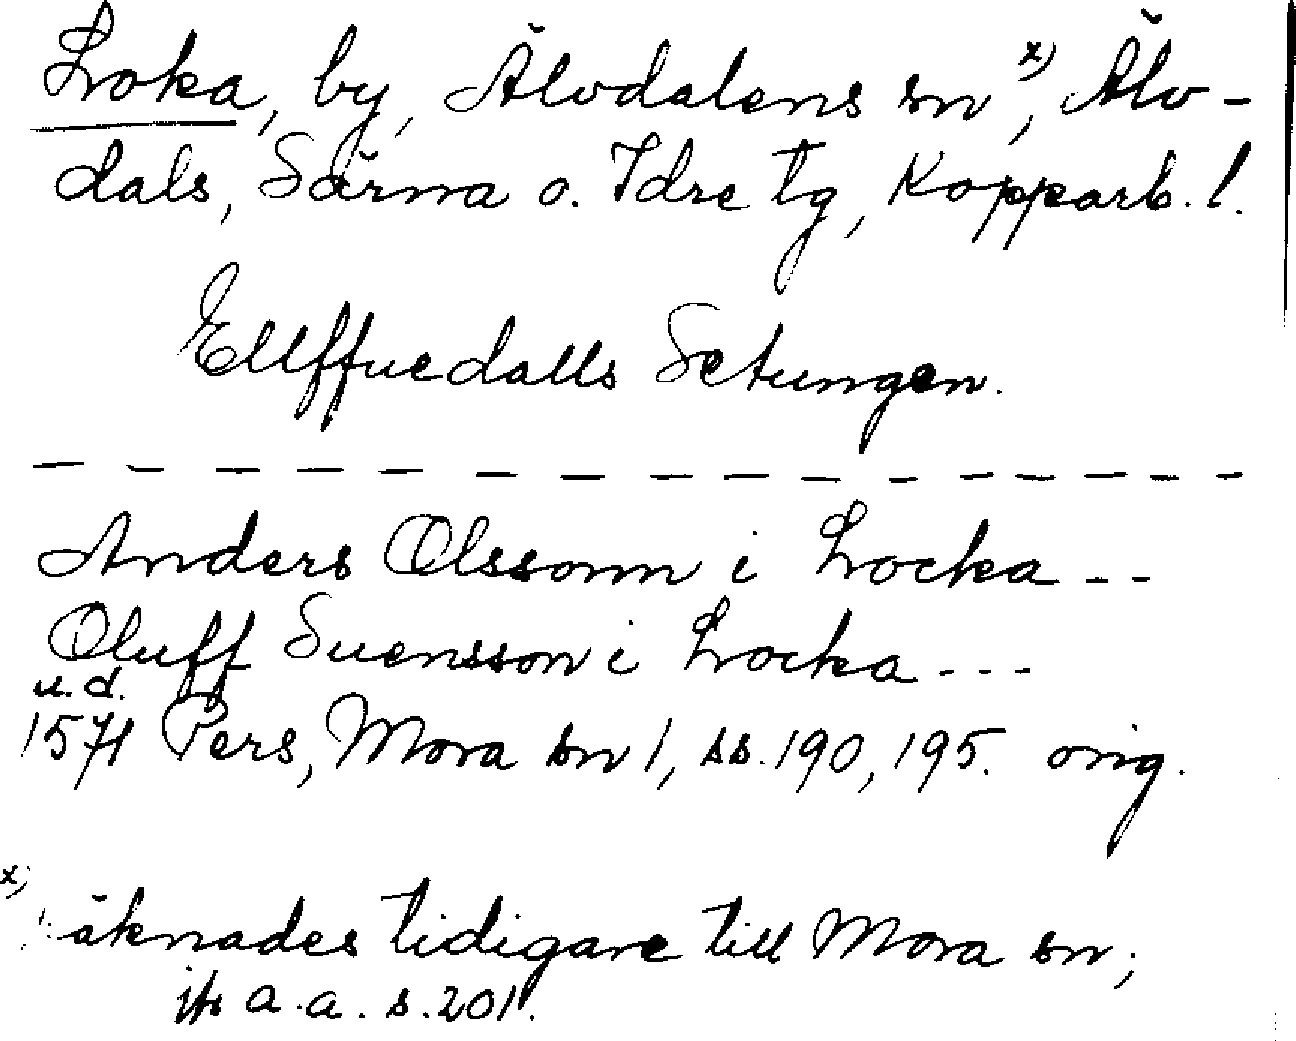 Loka, by, Älvdalens sn x), Älv-
dals, Särna o. Idre tg, Kopparb. l.
Ellffuedalls Setungen.
- - - - - - - - - - - - - - -
Anders Olssonn i Locka - -
Oluff Suensson i Locka - - -
u.d.
1571 Pers, Mora sn 1, ss. 190, 195. orig.
x) räknades tidigare till Mora sn;
jfr a.a. s. 201.